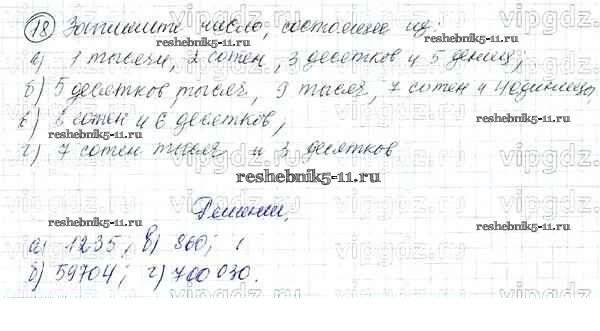 18) Запишите число, состоящее из:
reshebnik5-11.ru
а) 1 тысячи, 2 сотен, 3 десятков и 5 единиц;
б) 5 десятков тысяч, 9 тысяч, 7 сотен и 4 единиц,
reshebnik5-11.ru
в) 8 сотен и 6 десятков,
г) 7 сотен тысяч и 3 десятков
reshebnik5-11.ru
Решение,
а) 1235; в) 860;
б) 59704; г) 700 030.
reshebnik5-11.ru
vipgdz.